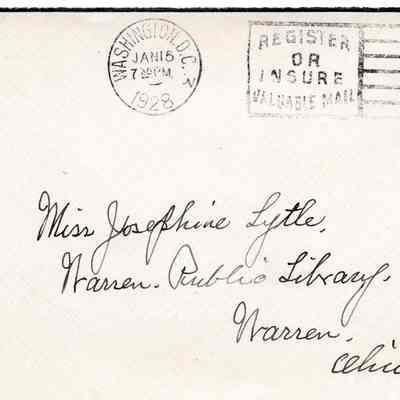 WASHINGTON, D.C.
JAN 15
7 PM
1928
REGISTER
OR
INSURE
VALUABLE MAIL
Miss Josephine Lytle,
Warren. Public Library,
Warren,